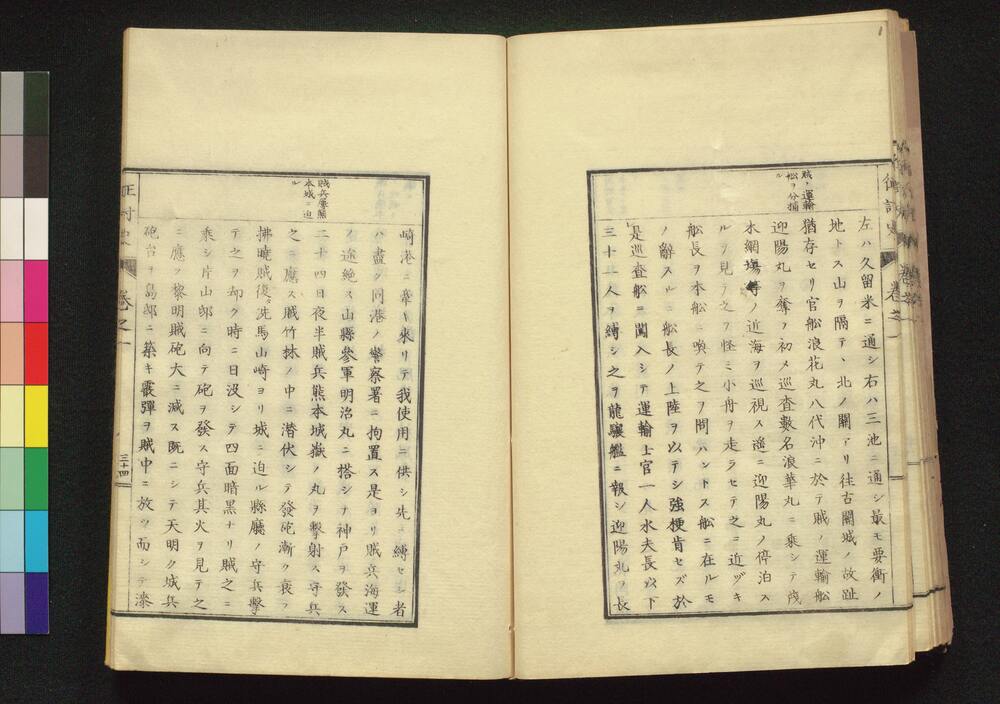 賊ノ運輸
船ヲ分捕
ル
左ハ久留米ニ通シ右ハ三池ニ通シ最モ要衝ノ
地トス山ヲ隔テヽ北ノ關アリ往古關城ノ故趾
猶存セリ官船浪花丸八代沖ニ於テ賊ノ運輸船
迎陽丸ヲ奪フ初メ巡査數名浪華丸ニ乘シテ
水網場等ノ近海ヲ巡視ス遙ニ迎陽丸ノ停泊ス
ルヲ見テ之ヲ怪ミ小舟ヲ走ラセテ之ニ近ヅキ
船長ヲ本船ニ喚テ之ヲ問ハントス船ニ在ルモ
ノ辭スルニ船長ノ上陸ヲ以テシ強梗肯セズ於
是巡査船ニ闖入シテ運輸士官一人水夫長以下
三十一人ヲ縛シ之ヲ龍驤艦ニ報シ迎陽丸ヲ長
賊兵屡熊
本城ニ迫
ル
崎港ニ牽ヒ來リテ我使用ニ供シ先ニ縛セシ者
ハ盡ク同港ノ警察署ニ拘置ス是ヨリ賊兵海運
ノ途絶ス山縣參軍明治丸ニ搭シテ神戸ヲ發ス
二十四日夜半賊兵熊本城嶽ノ丸ヲ擊射ス守兵
之ニ應ス賊竹林ノ中ニ潜伏シテ發砲漸ク衰フ
拂曉賊復タ洗馬山崎ヨリ城ニ迫ル縣廳ノ守兵擊
テ之ヲ却ク時ニ日没シテ四面暗黒ナリ賊之ニ
乘シ片山邸ニ向テ砲ヲ發ス守兵其火ヲ見テ之
ニ應フ黎明賊砲大ニ減ス既ニシテ天明ク城兵
砲台ヲ島邸ニ築キ霰彈ヲ賊中ニ放ツ而シテ漆
卷之一
三十四